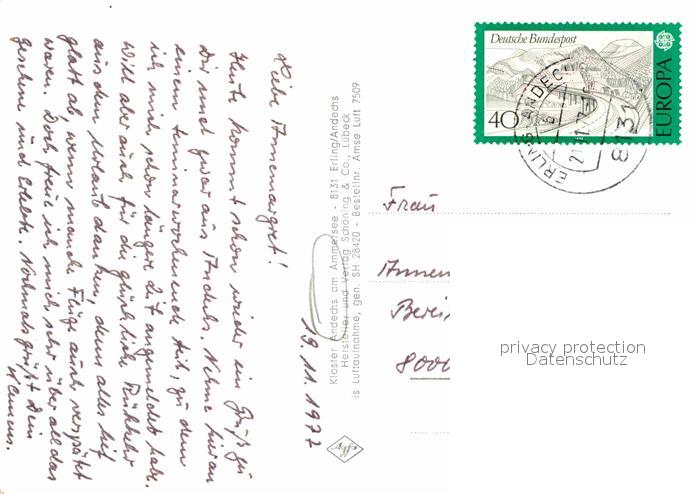 Liebe Annemargret!
Heute kommt schon wieder ein Gruß zu
Dir und zwar aus Andechs. Nehme hier an
einem Seminarwochenende teil, zu dem
ich mich schon längere Zeit angemeldet habe.
Will aber auch für die glückliche Rückkehr
aus dem Urlaub danken, denn alles lief
glatt ab, wenn manche Flüge auch verspätet
waren. Doch freue ich mich sehr über all das
Gesehene und Erlebte. Nochmals grüßt Dein
Clemens.
19.11.1977
Kloster Andechs am Ammersee - 8131 Erling/Andechs
Hersteller und Verlag Schöning & Co., Lübeck
is Luftaufnahme, gen. SH 28420 - Bestellnr. Amse Luft 7509
Agfa
Deutsche Bundespost
40
EUROPA
ERLING-ANDECHS
8131
Frau
Annem
8000
privacy protection
Datenschutz